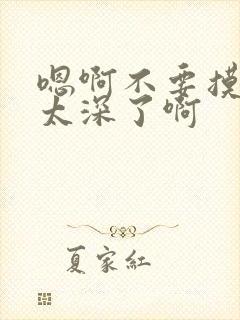 嗯啊不要摸
太深了啊
夏家红